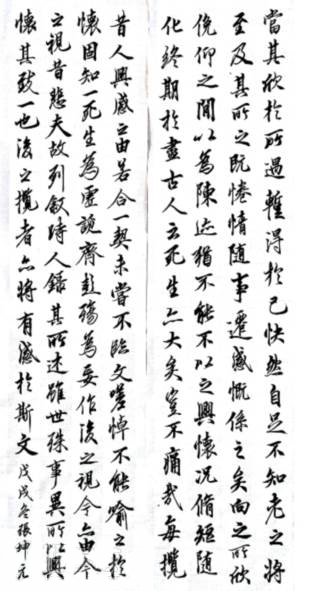 當其欣於所遇暫得於己快然自足不知老之將
至及其所之既惓情隨事遷感慨係之矣向之所欣
俛仰之間以為陳迹猶不能不以之興懷況脩短隨
化終期於盡古人云死生亦大矣豈不痛哉每攬
昔人興感之由若合一契未嘗不臨文嗟悼不能喻之於
懷固知一死生為虛誕齊彭殤為妄作後之視今亦由今
之視昔悲夫故列敘時人錄其所述雖世殊事異所以興
懷其致一也後之攬者亦將有感於斯文 戊戌冬張坤元